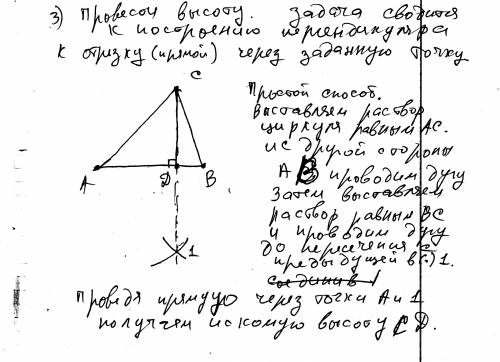 3) Провесои высоту. Задача сводится
к построению перпендикуляра
к отрезку (прямой) через заданную точку
C
A
D
B
1
Простой способ.
Выставляем раствор
циркуля равным AC.
и с другой стороны
AB проводим дугу
Затем выставляем
раствор равным BC
и проводим дугу
до пересечения с
предыдущей в (.) 1.
соединив
Проведя прямую через точки A и 1
получаем искомую высоту CD.